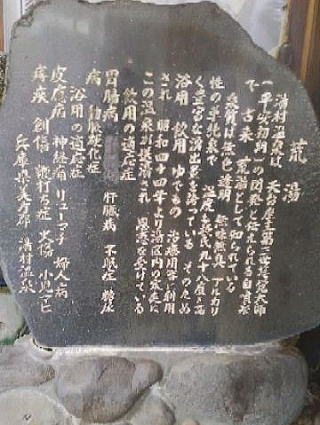 荒湯
湯村温泉は 天台座主第三世慈覚大師
(平安初期)の開発と伝えられる自噴泉
で 古来 荒湯として知られている
泉質は無色透明 無味無臭 アルカリ
性の単純泉で 温度も摂氏九十八度と高
く豊富な湧出量を誇っている そのため
浴用 飲用 ゆでもの 治療用等に利用
され 昭和四十四年より湯区内の家庭に
この温泉が配湯され 恩恵を受けている
飲用の適応症
胃腸病 肝臓病 不感症 糖尿
病 動脈硬化症
浴用の適応症
皮膚病 神経痛 リューマチ 婦人病
痔疾 創傷 鞭打ち症 火傷 小児マヒ
兵庫県美方郡 湯村温泉